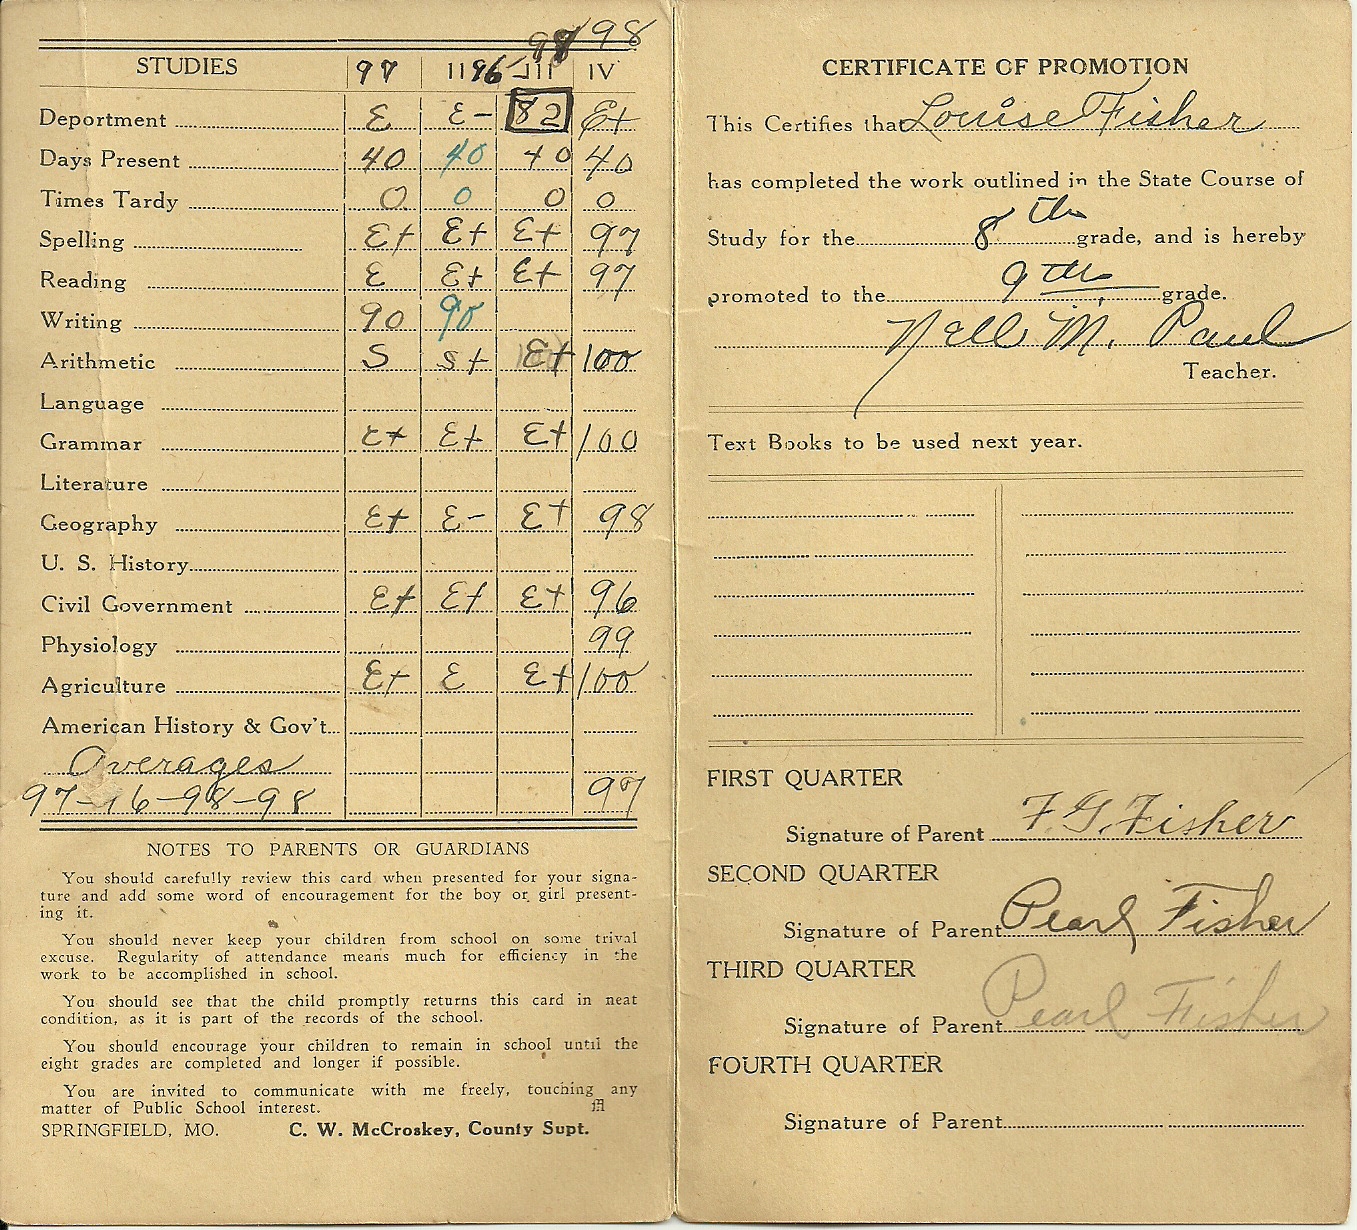 98 98
STUDIES 97 II 96 III IV
Deportment E E- 82 E+
Days Present 40 40 40 40
Times Tardy 0 0 0 0
Spelling E+ E+ E+ 97
Reading E E+ E+ 97
Writing 90 90
Arithmetic S S+ E+ 100
Language
Grammar E+ E+ E+ 100
Literature
Geography E+ E- E+ 98
U. S. History
Civil Government E+ E+ E+ 96
Physiology 99
Agriculture E+ E E+ 100
American History & Gov't.
Averages
97-96-98-98 97
NOTES TO PARENTS OR GUARDIANS
You should carefully review this card when presented for your signa-
ture and add some word of encouragement for the boy or girl present-
ing it.
You should never keep your children from school on some trival
excuse. Regularity of attendance means much for efficiency in the
work to be accomplished in school.
You should see that the child promptly returns this card in neat
condition, as it is part of the records of the school.
You should encourage your children to remain in school until the
eight grades are completed and longer if possible.
You are invited to communicate with me freely, touching any
matter of Public School interest.
SPRINGFIELD, MO. C. W. McCroskey, County Supt.
CERTIFICATE OF PROMOTION
This Certifies that Louise Fisher
has completed the work outlined in the State Course of
Study for the 8th grade, and is hereby
promoted to the 9th grade.
Nell M. Paul
Teacher.
Text Books to be used next year.
FIRST QUARTER
Signature of Parent F. G. Fisher
SECOND QUARTER
Signature of Parent Pearl Fisher
THIRD QUARTER
Signature of Parent Pearl Fisher
FOURTH QUARTER
Signature of Parent